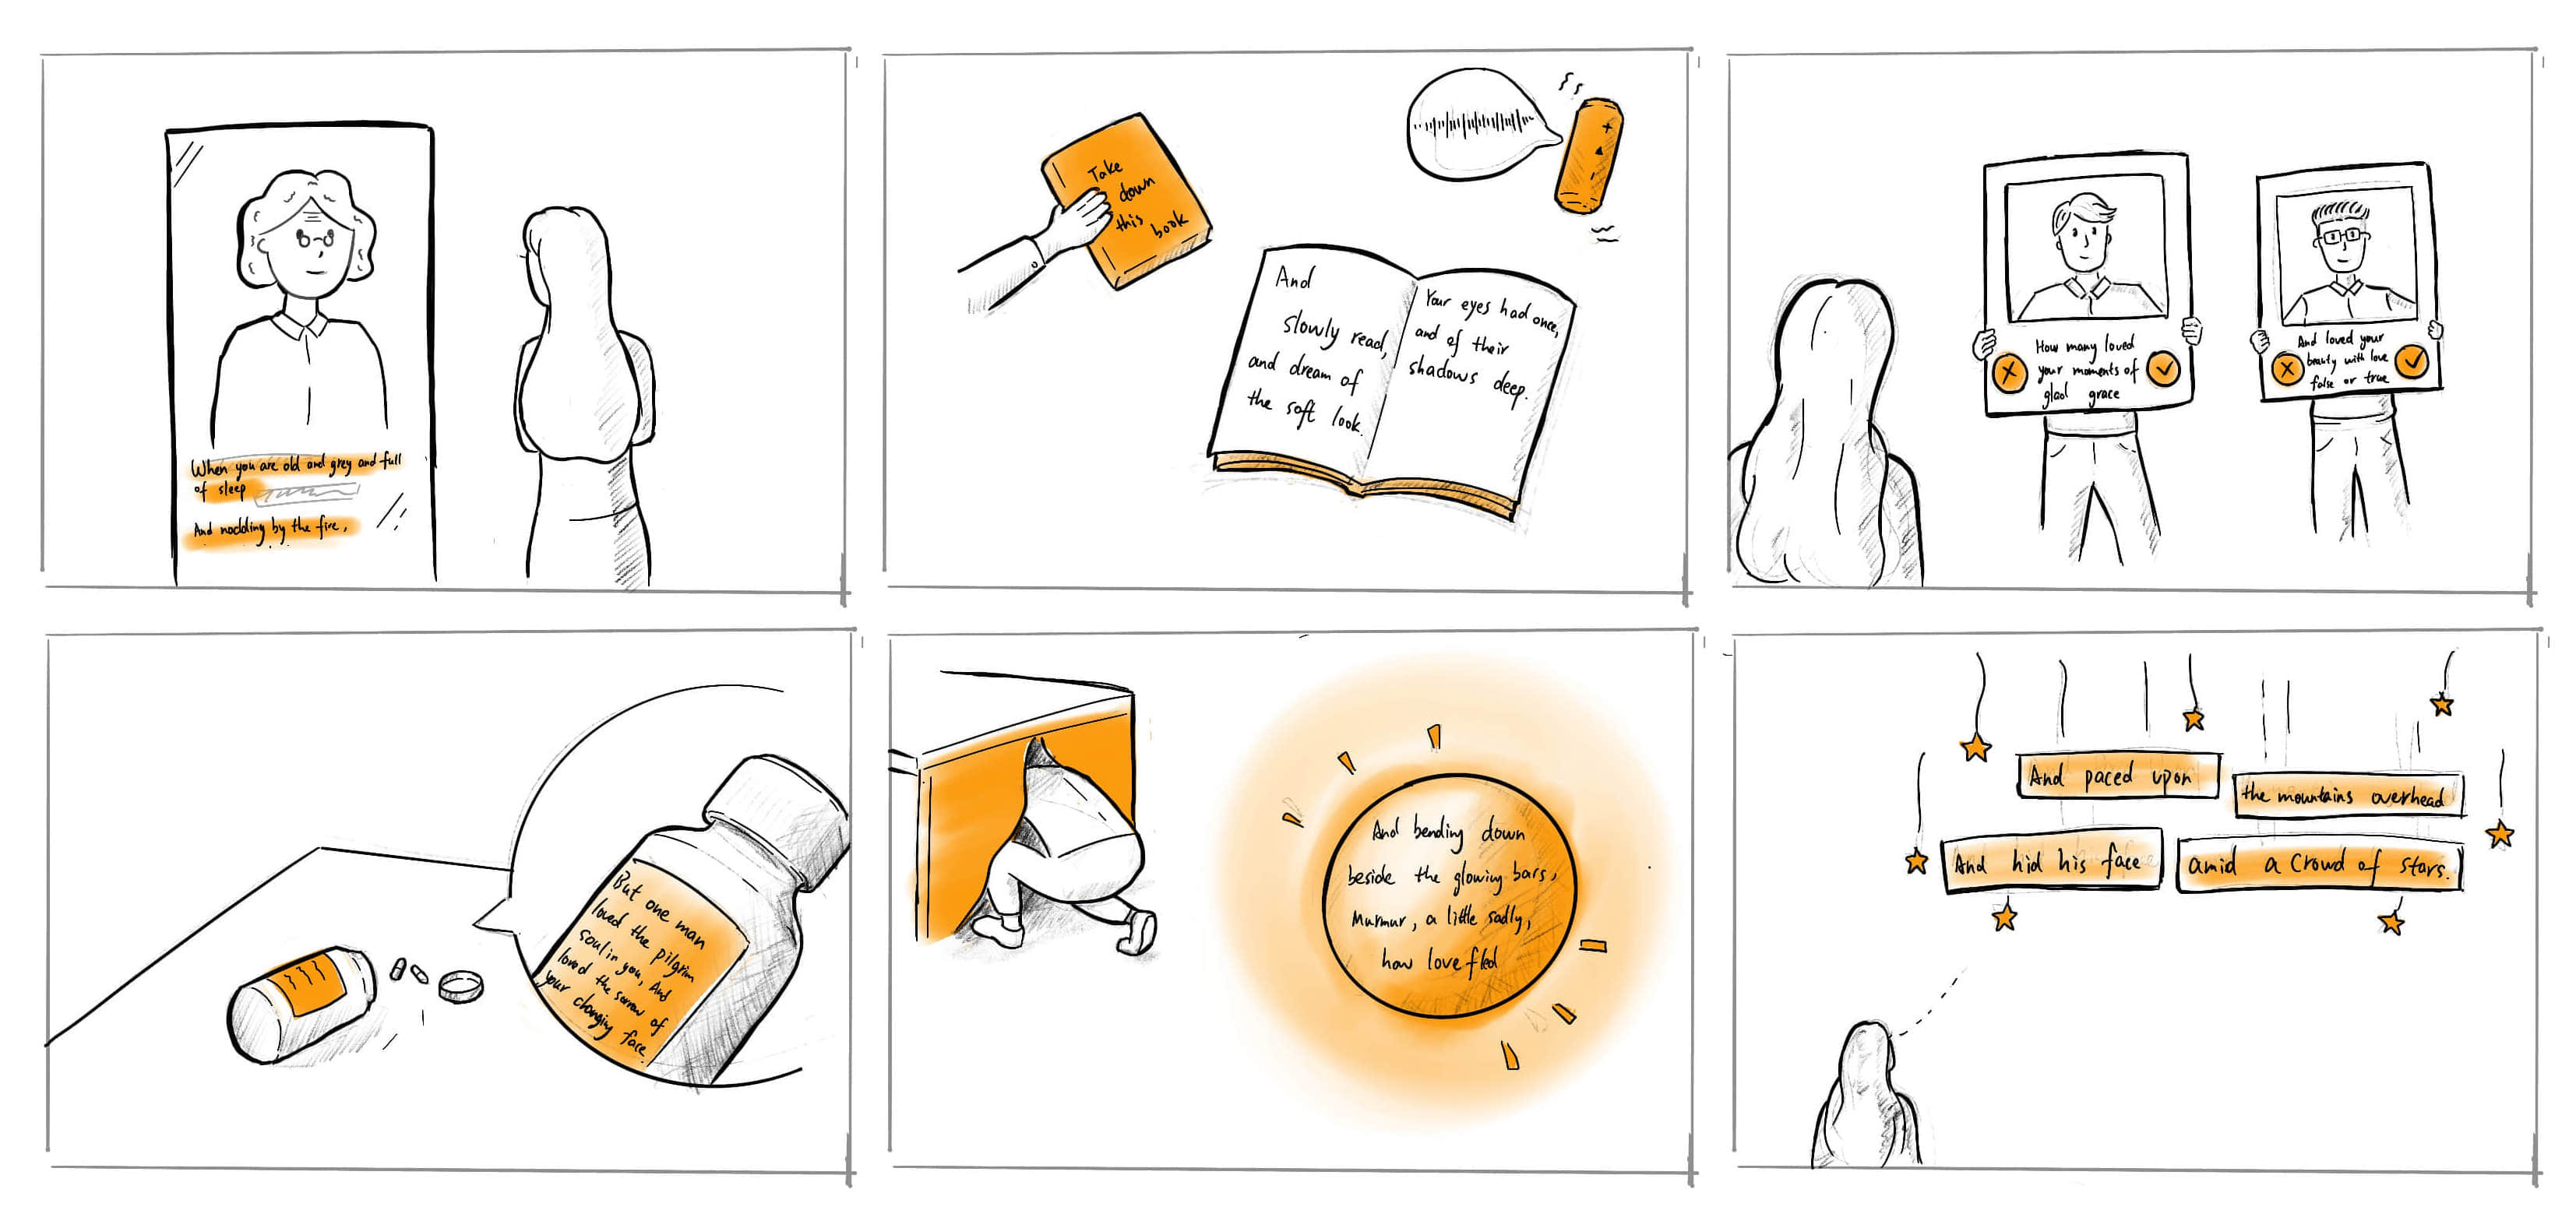 When you are old and grey and full
of sleep
And nodding by the fire,
Take
down
this
book
And
slowly read,
and dream of
the soft look.
Your eyes had once,
and of their
shadows deep.
How many loved
your moments of
glad grace
And loved your
beauty with love
false or true
But one man
loved the pilgrim
soul in you, And
loved the sorrow of
your changing face.
And bending down
beside the glowing bars,
Murmur, a little sadly,
how love fled
And paced upon
the mountains overhead
And hid his face
amid a crowd of stars.